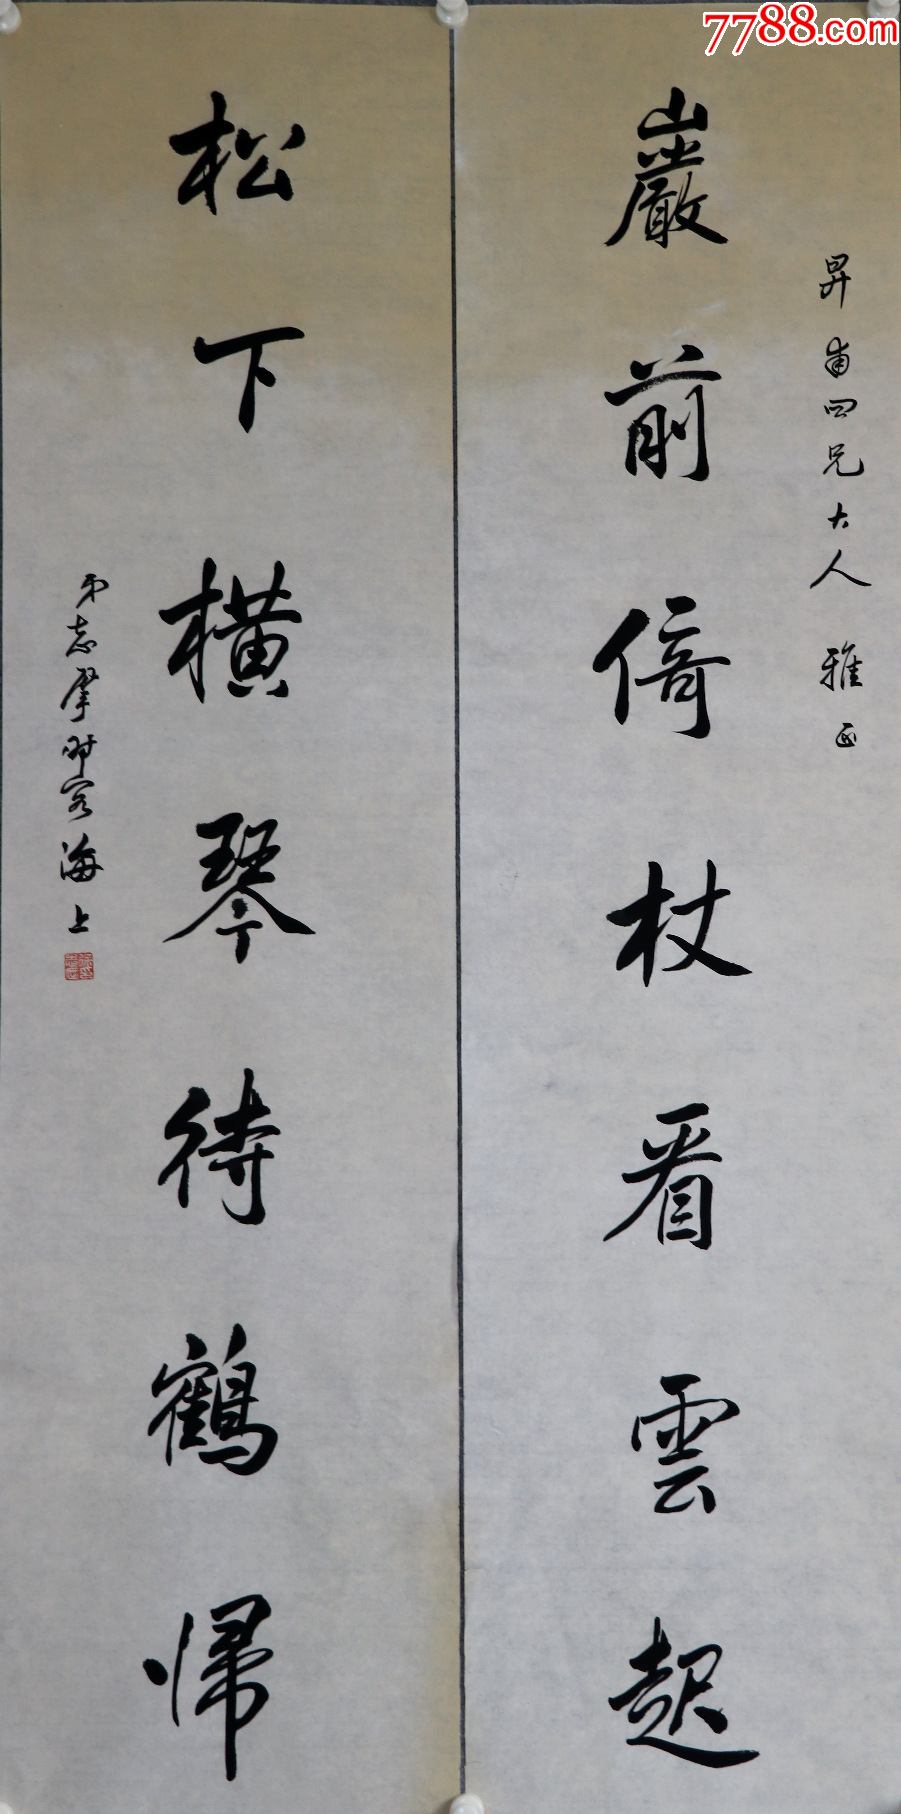 7788.com
昇甫四兄大人 雅正
巖前倚杖看雲起
松下橫琴待鶴歸
弟志肇時客海上